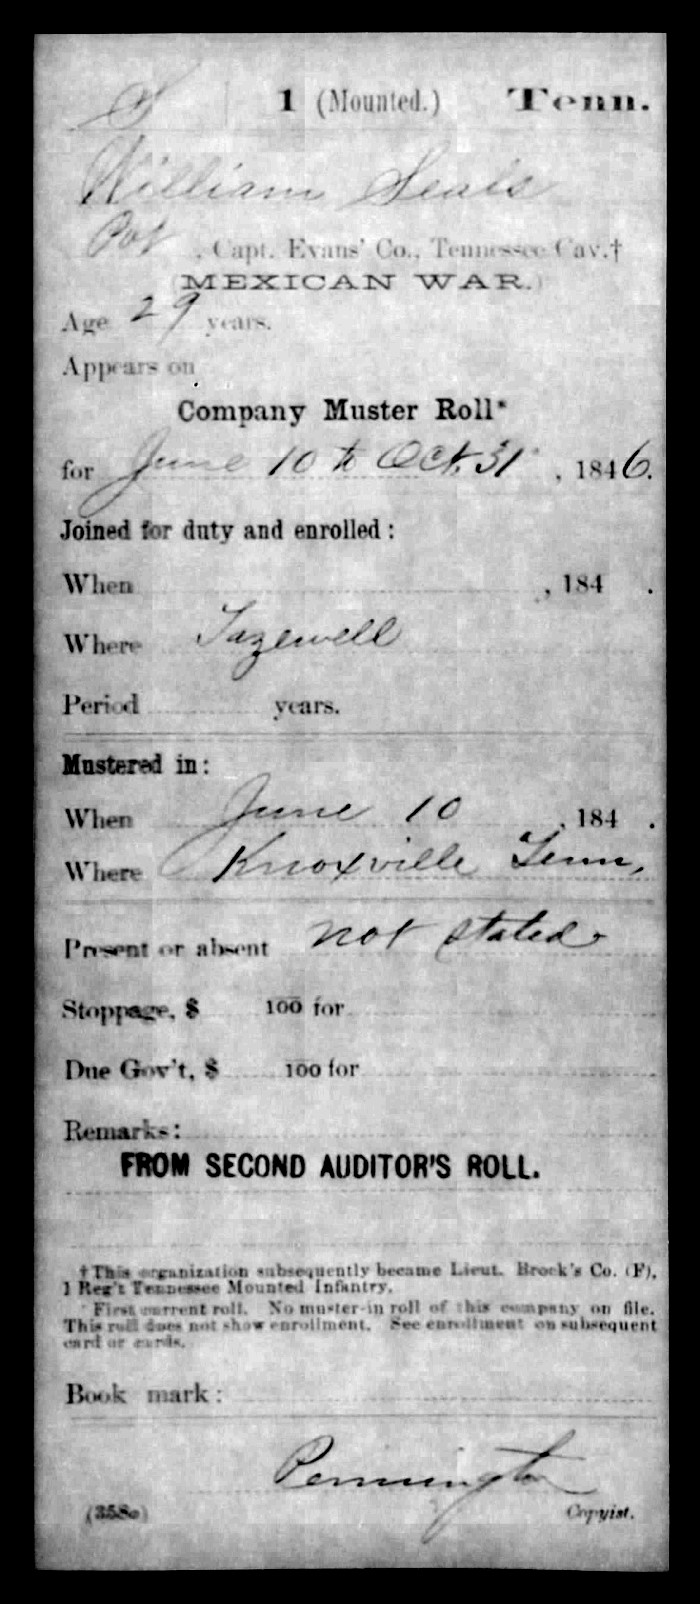 S 1 (Mounted.) Tenn.
William Seals
Pvt, Capt. Evans' Co., Tennessee Cav.†
(MEXICAN WAR.)
Age 29 years.
Appears on
Company Muster Roll*
for June 10 to Oct. 31, 1846.
Joined for duty and enrolled:
When , 184 .
Where Tazewell
Period years.
Mustered in:
When June 10, 184 .
Where Knoxville Tenn.
Present or absent not stated
Stoppage, $ 100 for
Due Gov't, $ 100 for
Remarks:
FROM SECOND AUDITOR'S ROLL.
†This organization subsequently became Lieut. Brock's Co. (F),
1 Reg't Tennessee Mounted Infantry.
*First current roll. No muster-in roll of this company on file.
This roll does not show enrollment. See enrollment on subsequent
card or cards.
Book mark:
Pennington
(358c) Copyist.